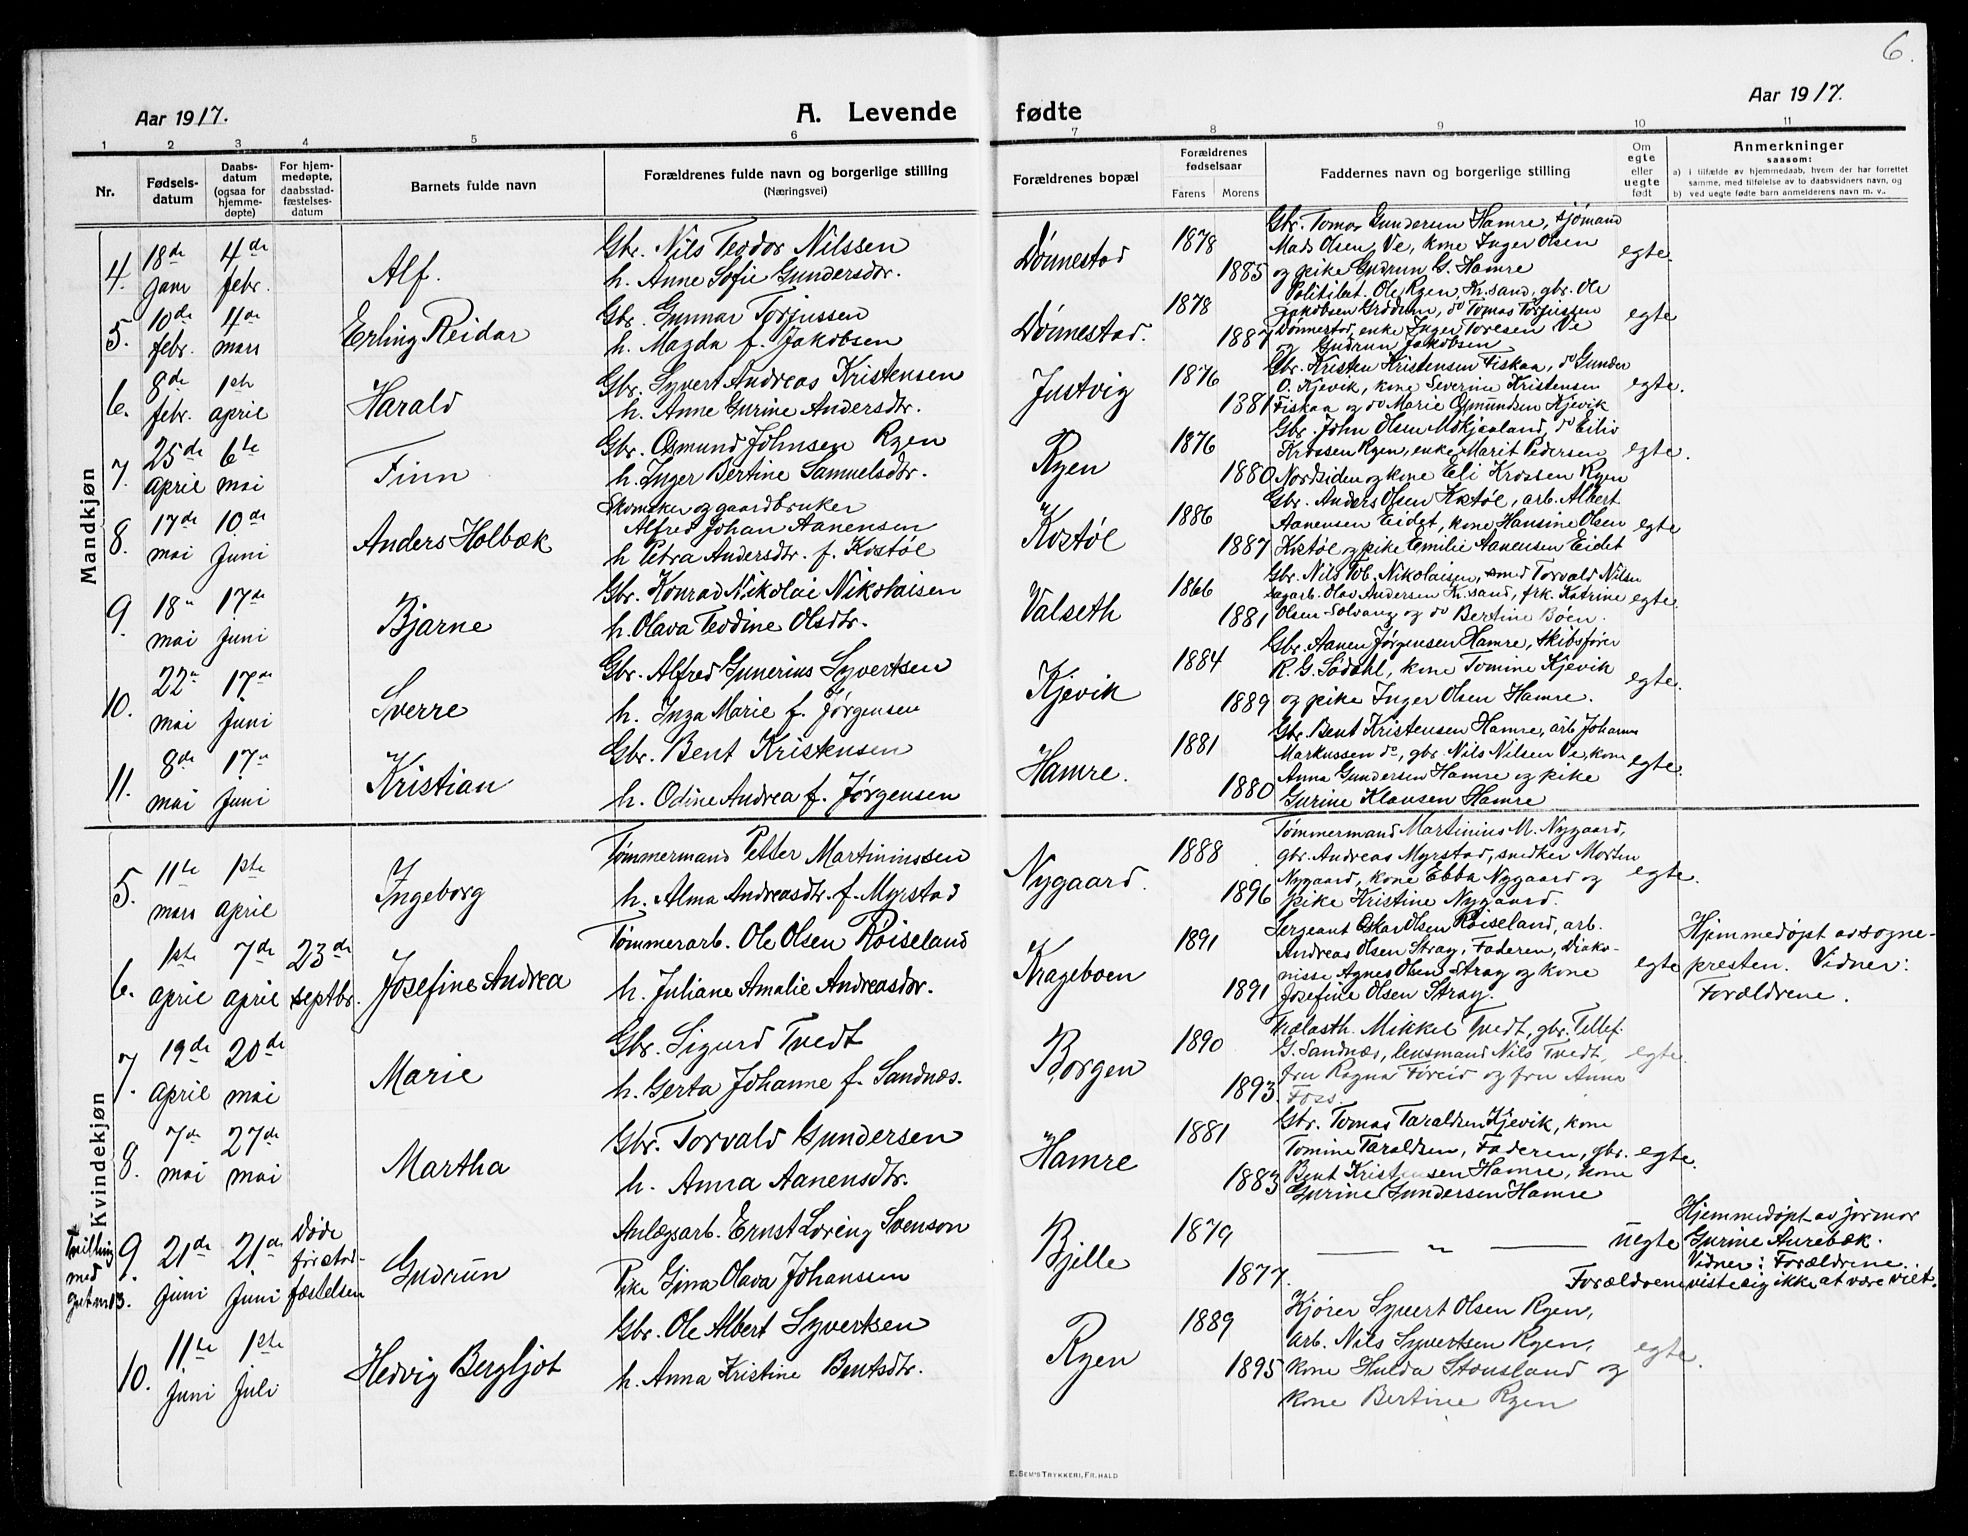 6.
Aar 1917.
A. Levende fødte
Aar 1917.
1 2 3 4 5 6 7 8 9 10 11
Nr.
Fødsels-
datum
Daabs-
datum
(ogsaa for
hjemme-
døpte)
For hjem-
medøpte,
daabsstad-
fæstelses-
datum
Barnets fulde navn
Forældrenes fulde navn og borgerlige stilling
(Næringsvei)
Forældrenes bopæl
Forældrenes
fødselsaar
Farens Morens
Faddernes navn og borgerlige stilling
Om
egte
eller
uegte
født
Anmerkninger
saasom:
a) i tilfælde av hjemmedaab, hvem der har forrettet
samme, med tilføielse av to daabsvidners navn, og
b) ved uegte fødte barn anmelderens navn m. v..
Mandkjøn
4. 18de jam 4de febr. Alf.
Gbr. Nils Teodor Nilssen
h. Anne Sofie Gundersdtr.
Dønnestad 1878 1885
Gbr. Tomas Gundersen Hamre, sjømand
Mads Olsen Ve, kone Inger Olsen
og pike Gudrun G. Hamre
egte.
5. 10de febr. 4de mars Erling Reidar
Gbr. Gunnar Torjussen
h. Magda f. Jakobsen
Dønnestad. 1878 1887
Politibet. Ole Ryen, Kr.sand, gbr. Ole
Jakobsen Grødum, do Tomas Torjussen
Dønnestad, enke Inger Toresen Ve
og Gudrun Jakobsen
egte
6. 8de febr. 1ste april Harald
Gbr. Syvert Andreas Kristensen
h. Anne Gurine Andersdtr.
Justvig 1876 1881
Gbr. Kristen Kristensen Fiskaa, do Gunder
O. Kjevik, kone Severine Kristensen
Fiskaa og do Marie Osmundsen Kjevik
egte.
7. 25de april 6te mai Finn
Gbr. Osmund Johnsen Ryen
h. Inger Bertine Samuelsdtr.
Ryen 1876 1880
Gbr. John Olsen Mokjaaland, do Eiliv
Krossen Ryen, enke Marit Pedersen
Nordsiden og kone Eli Krossen Ryen
egte.
8. 17de mai 10de juni Anders Holbæk
Skomaker og gaardbruker
Alfred Johan Aanensen
h Petra Andersdtr. f. Kostøl
Kostøl 1886 1887
Gbr. Anders Olsen Kostøl, arb. Albert
Aanensen Eidet, kone Hansine Olsen
Kostøl og pike Emilie Aanensen Eidet
egte
9. 18" mai 17de juni Bjarne
Gbr. Konrad Nikolai Nikolaisen
h. Olava Teodine Olsdtr.
Valseth 1866 1881
Gbr. Nils Tob. Nikolaisen, smed Torvald Nilsen
Olav Andersen Kr.sand, frk. Katrine
Olsen Solvang og do Bertine Bøen.
egte.
10. 22" mai 17de juni Sverre
Gbr. Alfred Gunerius Syvertsen
h. Inga Marie f. Jørgensen
Kjevik 1884 1889
Gbr. Aanen Jørgensen Hamre, skibsfører
R. G. Sødahl, kone Tomine Kjevik
og pike Inger Olsen Hamre.
egte.
11. 8de mai 17" juni Kristian
Gbr. Bent Kristensen
h. Odine Andrea f. Jørgensen
Hamre. 1881 1880
Gbr. Bent Kristensen Hamre, arb Johannes
Markussen do, gbr. Nils Nilsen Ve, kone
Anna Gundersen Hamre og pike
Gurine Klausen Hamre
egte.
Kvindekjøn
5. 11te mars 1ste april Ingeborg
Tømmermand Petter Martinussen
h. Alma Andreasdtr. f. Myrstad
Nygaard. 1888 1896
Tømmermand Martinius M. Nygaard,
gbr. Andreas Myrstad, snedker Morten
Nygaard, kone Ebba Nygaard og
pike Kristine Nygaard.
egte.
6. 1ste april 7de april 23de septbr. Josefine Andrea
Tømmerarb. Ole Olsen Røiseland
h. Juliane Amalie Andreasdtr.
Krageboen 1891 1891
Sergeant Oskar Olsen Røiseland, arb.
Andreas Olsen Stray, Faderen, Diako-
nisse Agnes Olsen Stray og kone
Josefine Olsen Stray.
egte
Hjemmedøpt av sogne-
presten. Vidner:
Forældrene.
7. 19de april 20de mai Marie
Gbr. Sigurd Tvedt
h. Gerta Johanne f. Sandnæs.
Borgen 1890 1893.
Mikkel Tvedt, gbr. Tellef.
G. Sandnæs, lensmand Nils Tvedt,
fru Ragna Føreid og fru Anna
Foss.
egte.
8. 7de mai 27de mai Martha
Gbr. Torvald Gundersen
h. Anna Aanensdtr.
Hamre 1881 1883
Gbr. Tomas Taraldsen Kjevik, kone
Tomine Taraldsen, Faderen, gbr.
Bent Kristensen Hamre, kone
Gurine Gundersen Hamre
egte.
Tvilling
med
gut nr 3.
9. 21de juni 21de juni
Døde
før stad-
fæstelsen
Gudrun
Anlægsarb. Ernst Loreng Svenson
Pike Gina Olava Johanssen
Bjelle 1879 1877.
— " — uegte
Hjemmedøpt av jormor
Gurine Aurebæk.
Vidner: Forældrene.
Forældrene viste sig ikke at være viet.
10. 11te juni 1ste juli Hedvig Bergljot
Gbr. Ole Albert Syvertsen
h. Anna Kristine Bentsdtr.
Ryen 1889 1895
Kjører Syvert Olsen Ryen,
arb. Nils Syvertsen Ryen,
kone Hulda Stousland og
kone Bertine Ryen
egte.
E. SEM'S TRYKKERI, FR.HALD